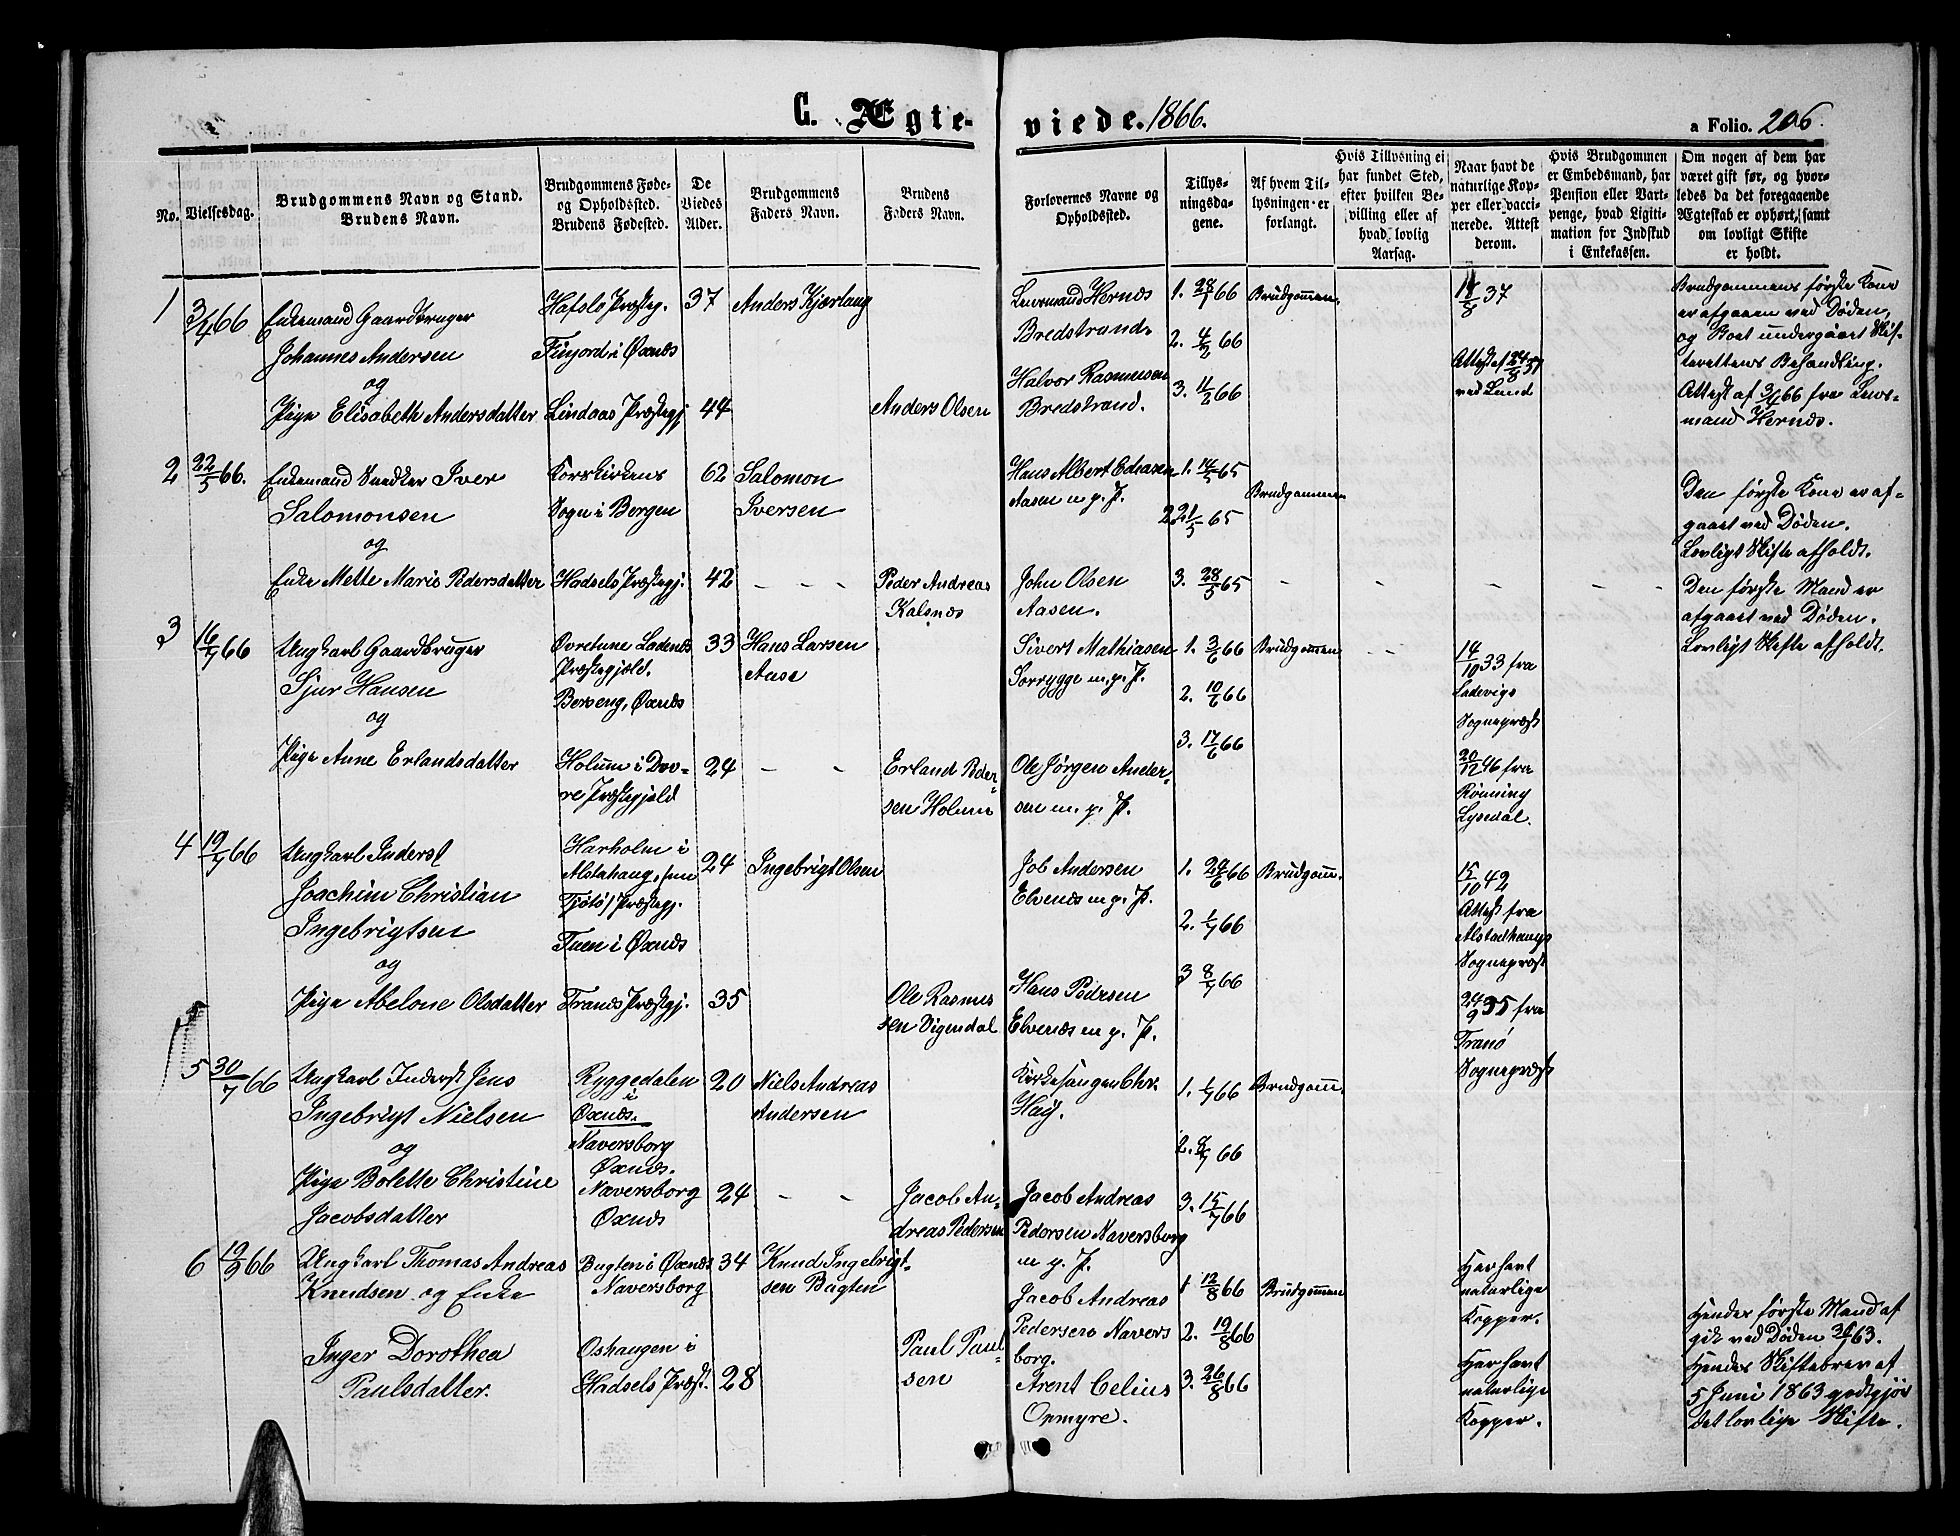 C. Ægte-
viede. 1866.
a Folio. 206.
No.
Vielsesdag.
Brudgommens Navn og Stand.
Brudens Navn.
Brudgommens Føde-
og Opholdssted.
Brudens Fødested.
De
Viedes
Alder.
Brudgommens
Faders Navn.
Brudens
Faders Navn.
Forlovernes Navne og
Opholdssted.
Tillys-
ningsda-
gene.
Af hvem Til-
lysningen er
forlangt.
Hvis Tillysning ei
har fundet Sted,
efter hvilken Be-
villing eller af
hvad lovlig
Aarsag.
Naar havt de
naturlige Kop-
per eller vacci-
nerede. Attest
derom.
Hvis Brudgommen
er Embedsmand, har
Pension eller Vart-
penge, hvad Ligiti-
mation for Indskud
i Enkekassen.
Om nogen af dem har
været gift før, og hvor-
ledes da det foregaaende
Ægteskab er ophørt, samt
om lovligt Skifte
er holdt.
1 3/4 66
Enkemand Gaardbruger
Johannes Andersen
og
Pige Elisabeth Andersdatter
Hafslo Præsteg.
Finjord i Øxnæs
Lindaas Præstegj
37
44
Anders Kjørlaug
Anders Olsen
Lensmand Hernæs
Bredstrand.
Halvor Rasmusen
Bredstrand.
1. 28/1 66
2. 4/2 66
3. 11/2 66
Brudgommen.
18/8 37
Attest af 24/8 37
ved Lund
Brudgommens første Kone
er afgaaen ved Døden,
og Boet undergaaet Skif-
terettens Behandling.
Attest af 3/4 66 fra Lens-
mand Hernæs.
2 22/5 66.
Enkemand Snedker Iver
Salomonsen
og
Enke Mette Marie Pedersdatter
Korskirkens
Sogn i Bergen
Hadsels Præstegj.
62
42
Salomon
Iversen
- -
Peder Andreas
Kalsnæs
Hans Albert Edeasen
Aasen m. p. P.
John Olsen
Aasen.
1. 14/5 65
2. 21/5 65
3. 28/5 65
Brudgommen
- - - -
Den første Kone er af-
gaaet ved Døden.
Lovligt Skifte afholdt.
Den første Mand er
afgaaet ved Døden.
Lovligt Skifte afholdt.
3 16/7 66
Ungkarl Gaardbruger
Sjur Hansen
og
Pige Anne Erlandsdatter
Øvretune Ladevigs
Præstegjeld.
Berseng, Øxnæs
Holum i Dov-
re Præstegjeld
33
24
Hans Larsen
- -
Erland Peder-
sen Holum
Sivert Mathiasen
Sørrygge m. p. P.
Ole Jørgen Ander-
sen m. p. P.
1. 3/6 66
2. 10/6 66
3. 17/6 66
Brudgommen
--
14/10 33 fra
Ladevigs
Sognepræst
20/12 46 fra
Rønning
Lysedal.
4 19/7 66
Ungkarl Inderst
Joachim Christian
Ingebrigtsen
og
Pige Abelone Olsdatter
Harholm i
Alstahaug, (nu
Tjøtø) Præstegj.
Tuen i Øxnæs
Tranøs Præstegj.
24
35
Ingebrigt Olsen
Ole Rasmus
sen Sigendal
Job Andersen
Elvenæs m. p. P.
Hans Pedersen
Elvenæs m. p. P.
1. 24/6 66
2. 1/7 66
3 8/7 66
Brudgomm.
15/10 42
Attest fra
Alstadhaugs
Sognepræst
24/9 35 fra
Tranø
Sognepræst
5 30/7 66
Ungkarl Inderst Jens
Ingebrigt Nielsen
og
Pige Bolette Christine
Jacobsdatter
Ryggedalen
i
Øxnæs.
Naversborg
Øxnæs.
Naversborg
Øxnæs
20
24
Niels Andreas
Andersen
- -
Jacob An-
dreas Pedersen
Kirkesanger Chr.
Høÿ.
Jacob Andreas
Pedersen Naversborg
m. p. P.
1. 1/7 66
2. 8/7 66
3. 15/7 66
Brudgomm.
6 19/9 66
Ungkarl Thomas Andreas
Knudsen og Enke
Inger Dorothea
Paulsdatter.
Bugten i Øxnæs
Naversborg
Oshaugen i
Hadsels Præst.
34
28
Knud Ingebrigt-
sen Bugten
Paul Paul-
sen
Jacob Andreas
Pedersen Navers
borg.
Arent Celius
Opmyre.
1 12/8 66
2. 19/8 66
3. 26/8 66
Brudgommen
Har havt
naturlige
Kopper.
Har havt
naturlige
Kopper.
Hendes første Mand af
gik ved Døden 63.
Hendes Skiftebrev af
5 Juni 1863 godtgjør
det lovlige Skifte.